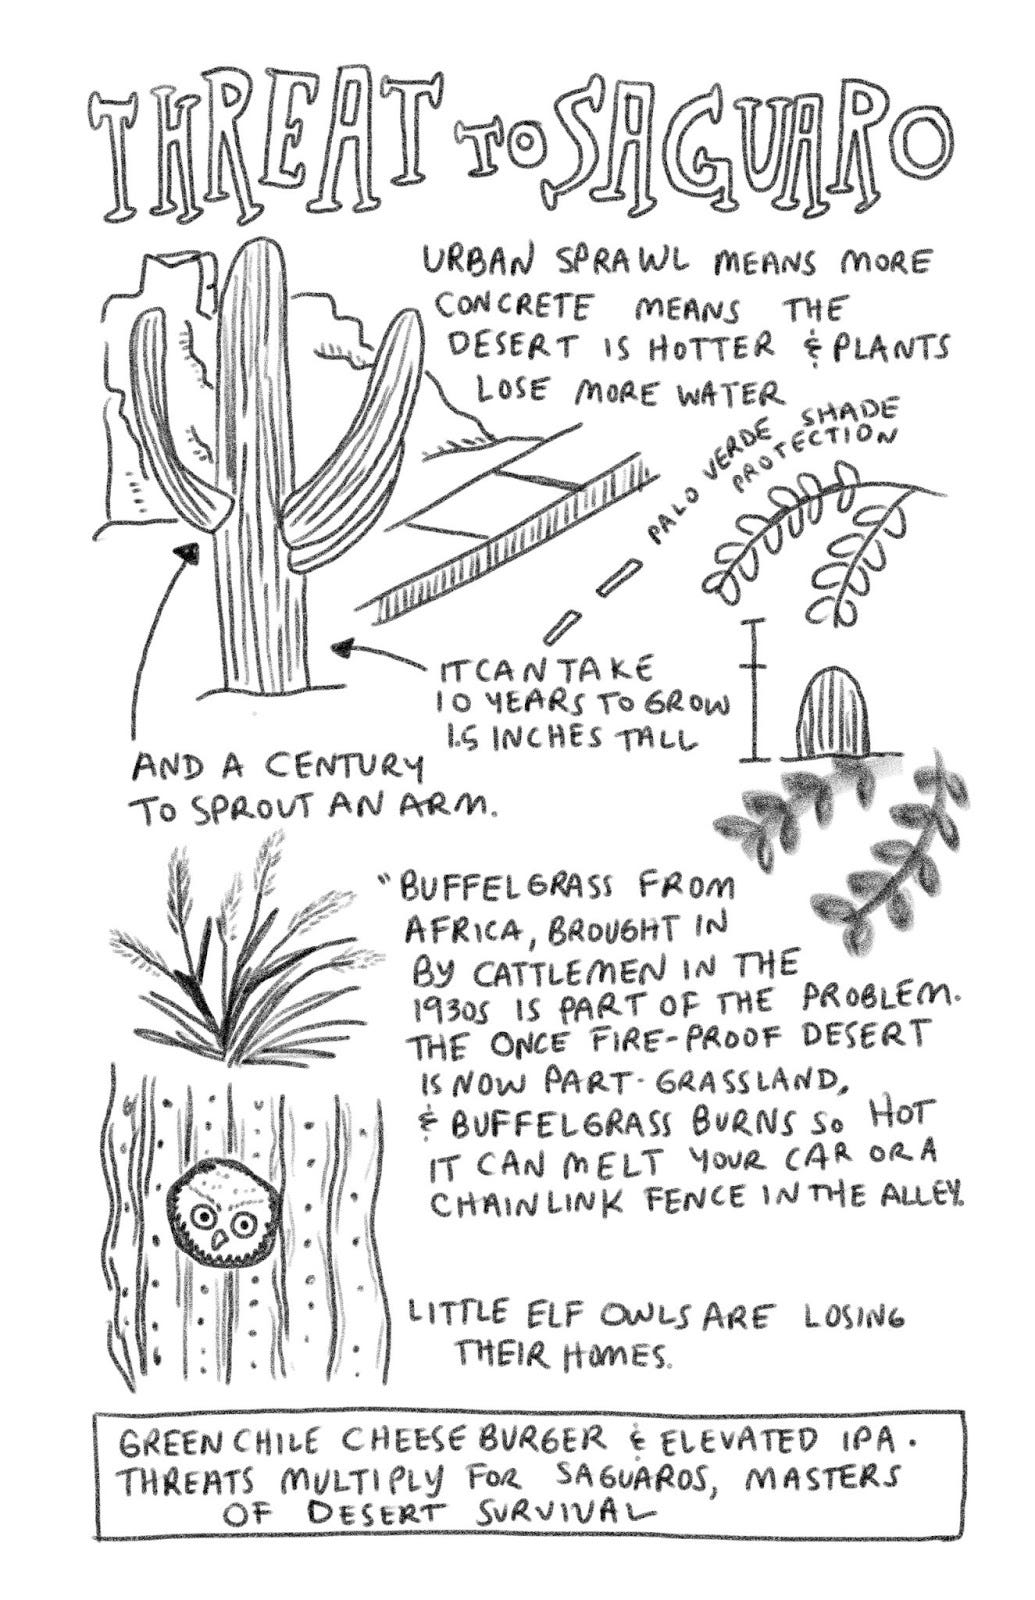 THREAT TO SAGUARO
URBAN SPRAWL MEANS MORE
CONCRETE MEANS THE
DESERT IS HOTTER & PLANTS
LOSE MORE WATER
PALO VERDE SHADE
PROTECTION
IT CAN TAKE
10 YEARS TO GROW
1.5 INCHES TALL
AND A CENTURY
TO SPROUT AN ARM.
"BUFFELGRASS FROM
AFRICA, BROUGHT IN
BY CATTLEMEN IN THE
1930S IS PART OF THE PROBLEM.
THE ONCE FIRE-PROOF DESERT
IS NOW PART-GRASSLAND,
& BUFFELGRASS BURNS SO HOT
IT CAN MELT YOUR CAR OR A
CHAINLINK FENCE IN THE ALLEY.
LITTLE ELF OWLS ARE LOSING
THEIR HOMES.
GREEN CHILE CHEESE BURGER & ELEVATED IPA.
THREATS MULTIPLY FOR SAGUAROS, MASTERS
OF DESERT SURVIVAL